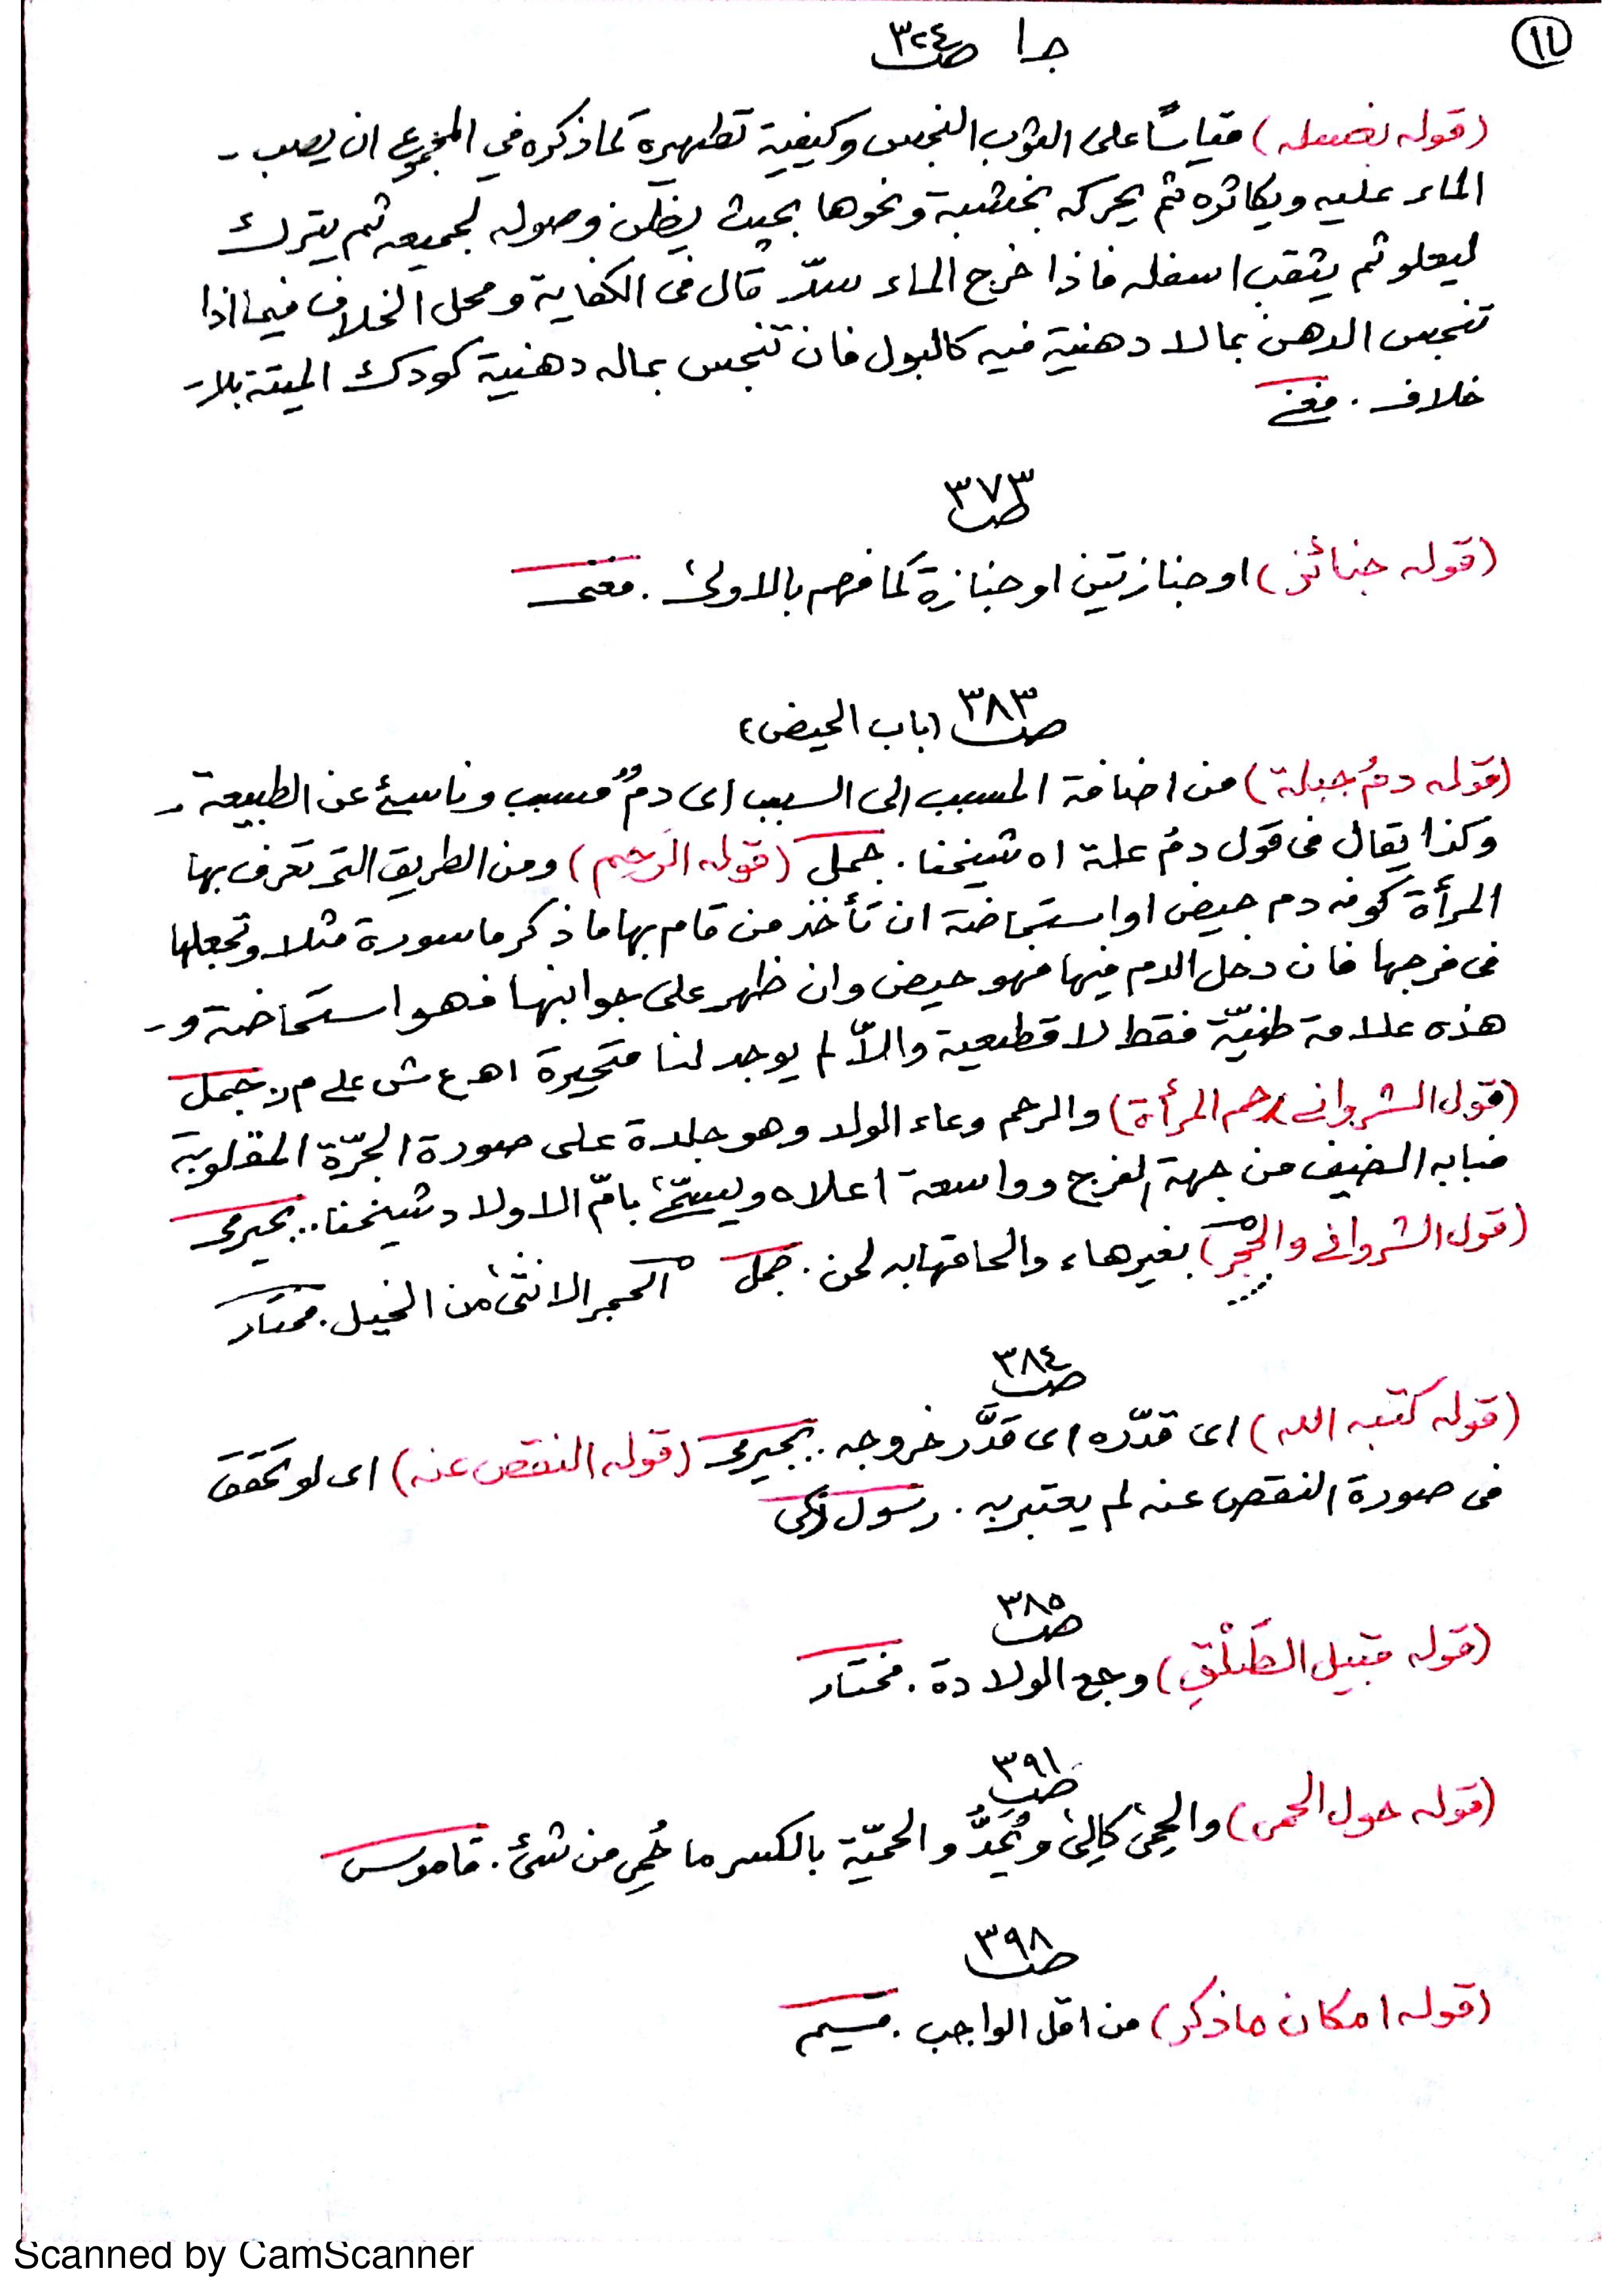 ١١
جـ١ صـ٣٢٤
(قوله بغسله) قياسًا على الثوب النجس وكيفية تطهيره كما ذكره في المجموع ان يصب -
الماء عليه ويكاثره ثم يحركه بخشبة ونحوها بحيث يظن وصوله لجميعه ثم يترك
ليعلو ثم يثقب اسفله فاذا خرج الماء سدّ قال فى الكفاية ومحل الخلاف فيما اذا
تنجس الدهن بما لا دهنية فيه كالبول فان تنجس بماله دهنية كودك الميتة بلا -
خلاف . مغنى
صـ٣٧٣
(قوله جنائز) او جنازتين او جنازة كما فهم بالاولى . مغنى
صـ٣٨٣ (باب الحيض)
(قوله دمُ جبلة) من اضافة المسبب الى السبب اى دمٌ مسبب وناسئ عن الطبيعة -
وكذا يقال فى قول دمُ علة اه شيخنا . جمل (قوله الرحم) ومن الطريق التى تعرف بها
المرأة كونه دم حيض او استحاضة ان تأخذ من قام بها ما ذكر ماسورة مثلا وتجعلها
فى فرجها فان دخل الدم فيها فهو حيض وان ظهر على جوانبها فهو استحاضة و -
هذه علامة ظنيّة فقط لا قطعية والاّ لم يوجد لنا متحيرة اهـ ع ش على م ر . جمل
(قول الشروانى رحم المرأة) والرحم وعاء الولد وهو جلدة على صورة الجرّة المقلوبة
فبابه الضيف من جهة الفرج وواسعة اعلاه ويسمّى بامّ الاولاد شيخنا .. بجيرمى
(قول الشروانى والحجر) بغيرهاء والحاقها به لحن . جمل الحجر الانثى من الخيل . مختار
صـ٣٨٤
(قوله كتبه الله) اى قدّره اى قدَّر خروجه .. بجيرمى (قوله النقص عنه) اى لو تحقق
فى صورة النقص عنه لم يعتبر به . رسول زكى
صـ٣٨٥
(قوله قبيل الطَلْقِ) وجع الولادة . مختار
صـ٣٩١
(قوله حول الحمى) والحِمىٰ كإلىٰ ويُمَدُّ والحميّة بالكسر ما حُمِى من شئ . قاموس
صـ٣٩٨
(قوله امكان ماذكر) من اقل الواجب .
Scanned by CamScanner